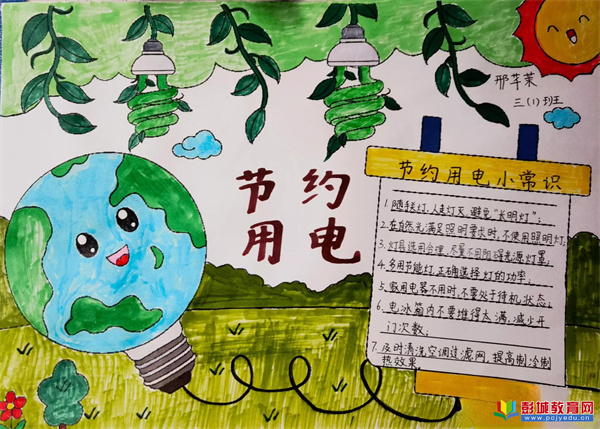 邢芊茉
三(1)班
节约
用电
节约用电小常识
1.随手关灯,人走灯灭,避免"长明灯";
2.在自然光满足照明要求时,不使用照明灯;
3.灯具选用合理,尽量不用阻碍光源灯罩;
4.多用节能灯,正确选择灯的功率;
5.家用电器不用时,不要处于待机状态;
6.电冰箱内不要堆得太满,减少开
门次数;
7.及时清洗空调过滤网,提高制冷制
热效果。
彭城教育网
www.pcjyedu.cn